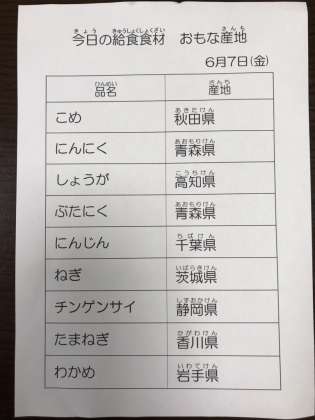 今日の給食食材　おもな産地
6月7日(金)
品名 産地
こめ 秋田県
にんにく 青森県
しょうが 高知県
ぶたにく 青森県
にんじん 千葉県
ねぎ 茨城県
チンゲンサイ 静岡県
たまねぎ 香川県
わかめ 岩手県